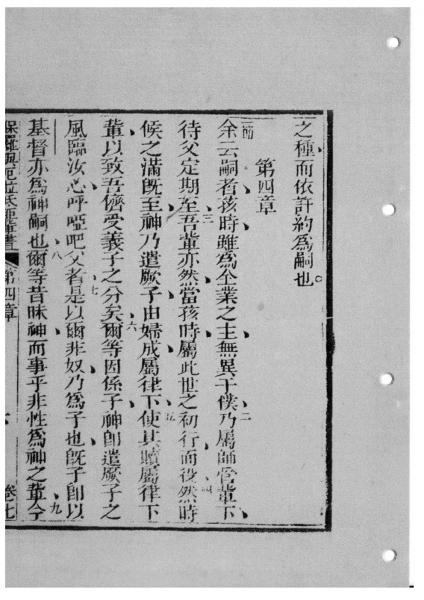 之種而依許約為嗣也。
第四章
一節余云嗣者孩時雖為全業之主無異于僕二乃屬師管輩下
待父定期至三吾輩亦然當孩時屬此世之初行而役四然時
候之滿既至神乃遣厥子由婦成屬律下五使其贖屬律下
輩以致吾儕受義子之分矣六爾等因係子神即遣厥子之
風臨汝心呼啞吧父者七是以爾非奴乃為子也既子即以
基督亦為神嗣也八爾等昔昧神而事乎非性為神之輩九今
第四章 卷七